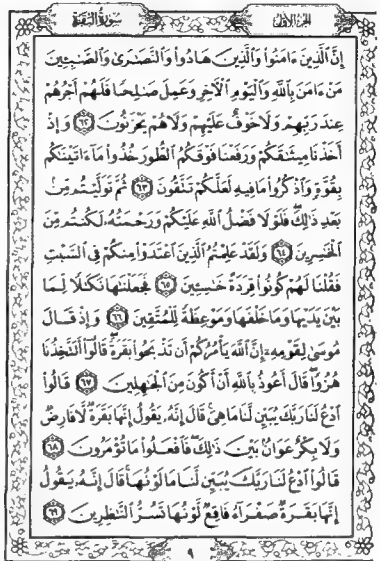 الجزء الأول
سورة البقرة
إِنَّ ٱلَّذِينَ ءَامَنُوا۟ وَٱلَّذِينَ هَادُوا۟ وَٱلنَّصَـٰرَىٰ وَٱلصَّـٰبِـِٔينَ
مَنْ ءَامَنَ بِٱللَّهِ وَٱلْيَوْمِ ٱلْـَٔاخِرِ وَعَمِلَ صَـٰلِحًا فَلَهُمْ أَجْرُهُمْ
عِندَ رَبِّهِمْ وَلَا خَوْفٌ عَلَيْهِمْ وَلَا هُمْ يَحْزَنُونَ ٦٢ وَإِذْ
أَخَذْنَا مِيثَـٰقَكُمْ وَرَفَعْنَا فَوْقَكُمُ ٱلطُّورَ خُذُوا۟ مَآ ءَاتَيْنَـٰكُم
بِقُوَّةٍ وَٱذْكُرُوا۟ مَا فِيهِ لَعَلَّكُمْ تَتَّقُونَ ٦٣ ثُمَّ تَوَلَّيْتُم مِّنۢ
بَعْدِ ذَٰلِكَ ۖ فَلَوْلَا فَضْلُ ٱللَّهِ عَلَيْكُمْ وَرَحْمَتُهُۥ لَكُنتُم مِّنَ
ٱلْخَـٰسِرِينَ ٦٤ وَلَقَدْ عَلِمْتُمُ ٱلَّذِينَ ٱعْتَدَوْا۟ مِنكُمْ فِى ٱلسَّبْتِ
فَقُلْنَا لَهُمْ كُونُوا۟ قِرَدَةً خَـٰسِـِٔينَ ٦٥ فَجَعَلْنَـٰهَا نَكَـٰلًا لِّمَا
بَيْنَ يَدَيْهَا وَمَا خَلْفَهَا وَمَوْعِظَةً لِّلْمُتَّقِينَ ٦٦ وَإِذْ قَالَ
مُوسَىٰ لِقَوْمِهِۦٓ إِنَّ ٱللَّهَ يَأْمُرُكُمْ أَن تَذْبَحُوا۟ بَقَرَةً ۖ قَالُوٓا۟ أَتَتَّخِذُنَا
هُزُوًا ۖ قَالَ أَعُوذُ بِٱللَّهِ أَنْ أَكُونَ مِنَ ٱلْجَـٰهِلِينَ ٦٧ قَالُوا۟
ٱدْعُ لَنَا رَبَّكَ يُبَيِّن لَّنَا مَا هِىَ ۚ قَالَ إِنَّهُۥ يَقُولُ إِنَّهَا بَقَرَةٌ لَّا فَارِضٌ
وَلَا بِكْرٌ عَوَانٌۢ بَيْنَ ذَٰلِكَ ۖ فَٱفْعَلُوا۟ مَا تُؤْمَرُونَ ٦٨
قَالُوا۟ ٱدْعُ لَنَا رَبَّكَ يُبَيِّن لَّنَا مَا لَوْنُهَا ۚ قَالَ إِنَّهُۥ يَقُولُ
إِنَّهَا بَقَرَةٌ صَفْرَآءُ فَاقِعٌ لَّوْنُهَا تَسُرُّ ٱلنَّـٰظِرِينَ ٦٩
٩